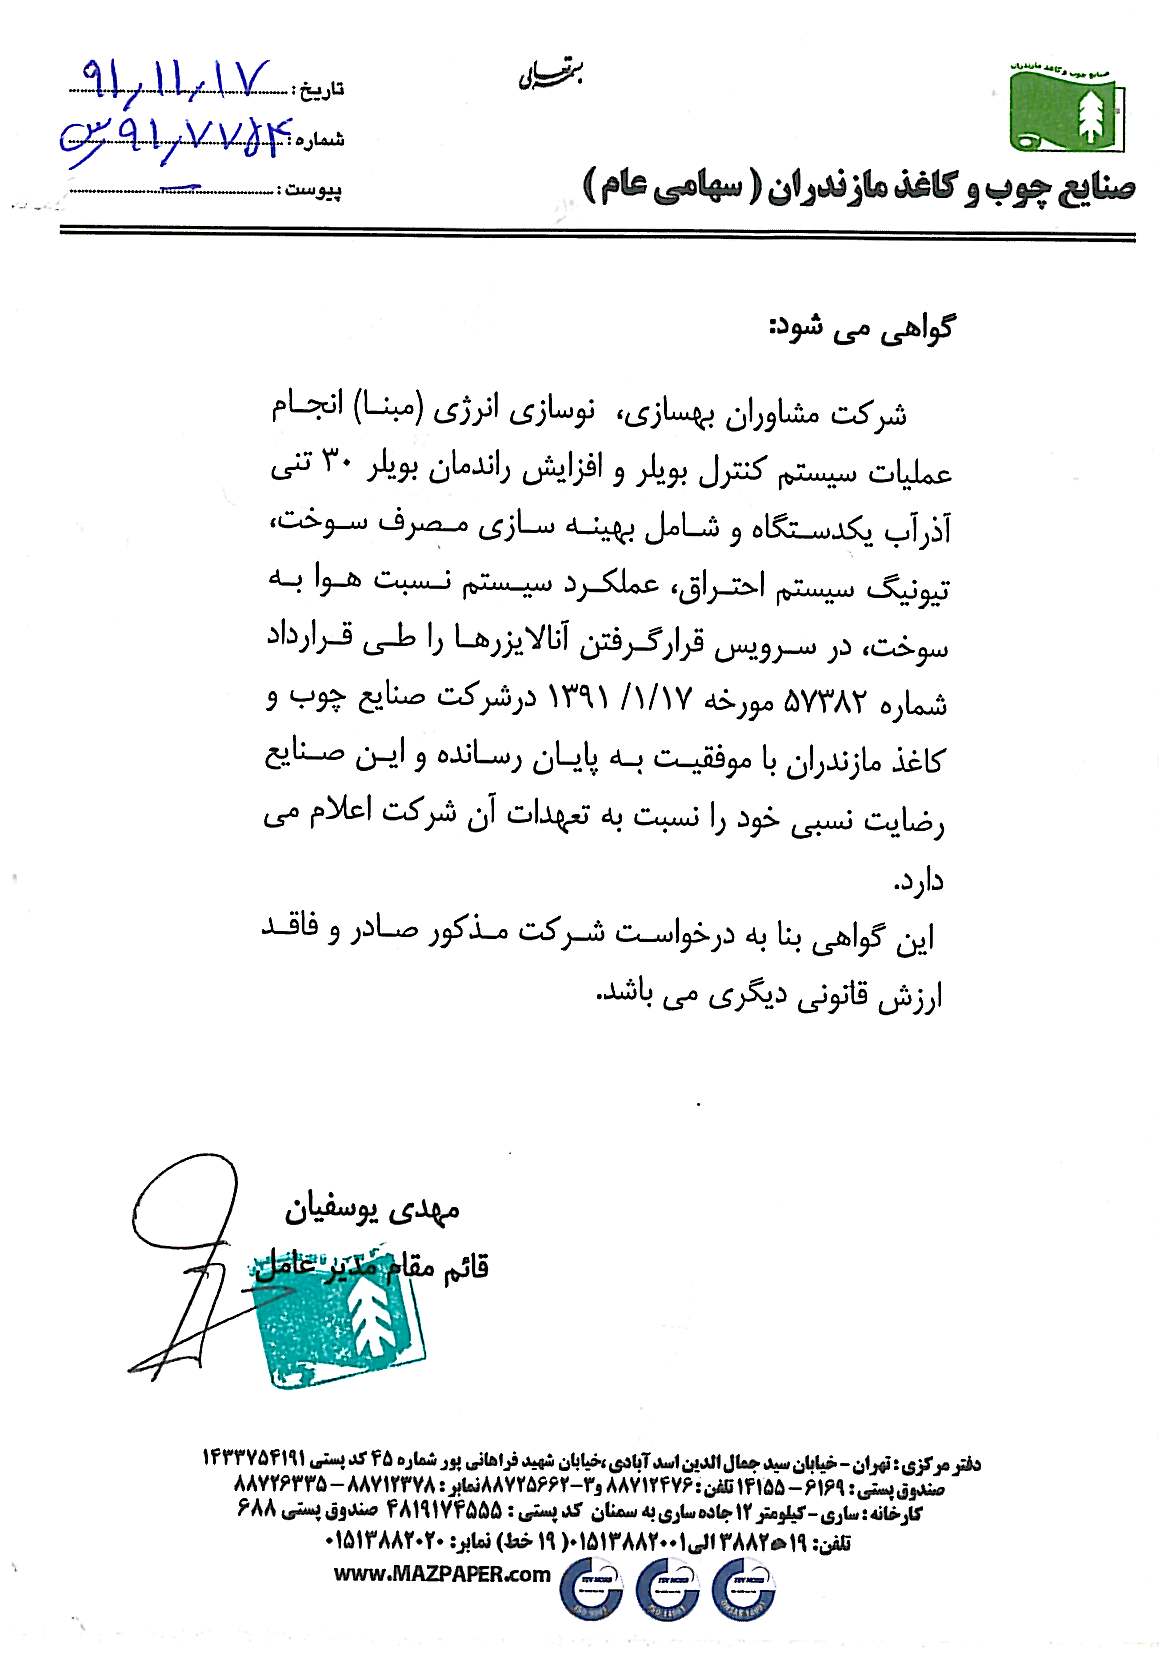 بسمه تعالی
صنایع چوب و کاغذ مازندران
صنایع چوب و کاغذ مازندران ( سهامی عام )
تاریخ: ۹۱/۱۱/۱۷
شماره: ۹۱/۷۷۵۴
پیوست: —
گواهی می شود:
شرکت مشاوران بهسازی، نوسازی انرژی (مبنا) انجام
عملیات سیستم کنترل بویلر و افزایش راندمان بویلر ۳۰ تنی
آذرآب یکدستگاه و شامل بهینه سازی مصرف سوخت،
تیونیگ سیستم احتراق، عملکرد سیستم نسبت هوا به
سوخت، در سرویس قرارگرفتن آنالایزرها را طی قرارداد
شماره ۵۷۳۸۲ مورخه ۱۳۹۱ /۱/۱۷ درشرکت صنایع چوب و
کاغذ مازندران با موفقیت به پایان رسانده و این صنایع
رضایت نسبی خود را نسبت به تعهدات آن شرکت اعلام می
دارد.
این گواهی بنا به درخواست شرکت مذکور صادر و فاقد
ارزش قانونی دیگری می باشد.
مهدی یوسفیان
قائم مقام مدیر عامل
دفتر مرکزی: تهران - خیابان سید جمال الدین اسد آبادی، خیابان شهید فراهانی پور شماره ۴۵ کد پستی ۱۴۳۳۷۵۴۱۹۱
صندوق پستی: ۶۱۶۹ - ۱۴۱۵۵ تلفن: ۸۸۷۱۲۴۷۶ و۳-۸۸۷۲۵۶۶۲ نمابر: ۸۸۷۱۲۳۷۸ - ۸۸۷۲۶۳۳۵
کارخانه: ساری - کیلومتر ۱۲ جاده ساری به سمنان کد پستی: ۴۸۱۹۱۷۴۵۵۵ صندوق پستی ۶۸۸
تلفن: ۱۹ الی ۰۱۵۱۳۸۸۲۰۰۱ (۱۹ خط) نمابر: ۰۱۵۱۳۸۸۲۰۲۰
www.MAZPAPER.com